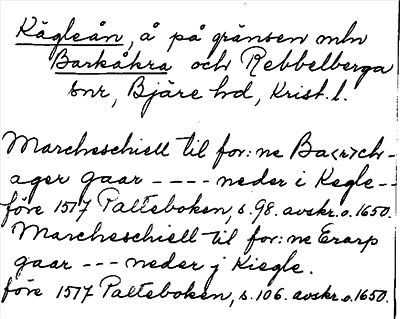 Kägleån, å på gränsen mln
Barkåkra och Rebbelberga
snr, Bjäre hd, Krist. l.
Marcheschiell til for: ne Ba<r>chr-
ager gaar ---- neder i Kegle--
före 1577 Palteboken, s. 98. avskr. o. 1650.
Marcheschiell til for: ne Erarp
gaar --- neder j Kiegle.
före 1577 Palteboken, s. 106. avskr. o. 1650.